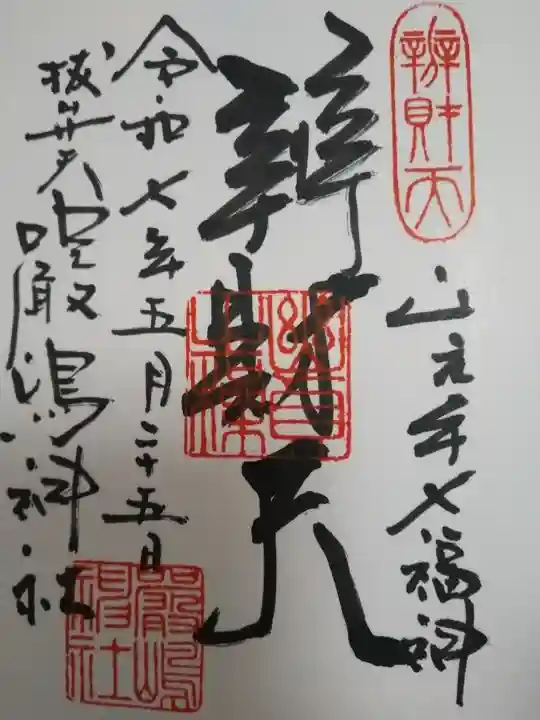 辨財天
山之手七福神
辨財天
令和七年五月二十五日
抜弁天嚴嶋神社
嚴嶋神社